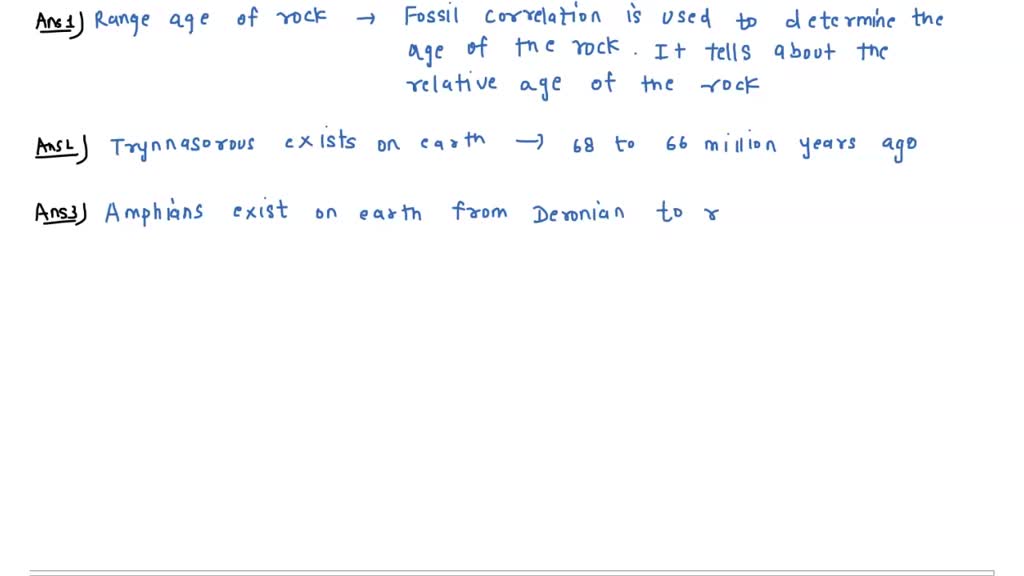 Ans1) Range age of rock → Fossil correlation is used to determine the
age of the rock. It tells about the
relative age of the rock
Ans2) Trynnasorous exists on earth → 68 to 66 million years ago
Ans3) Amphians exist on earth from Deronian to r